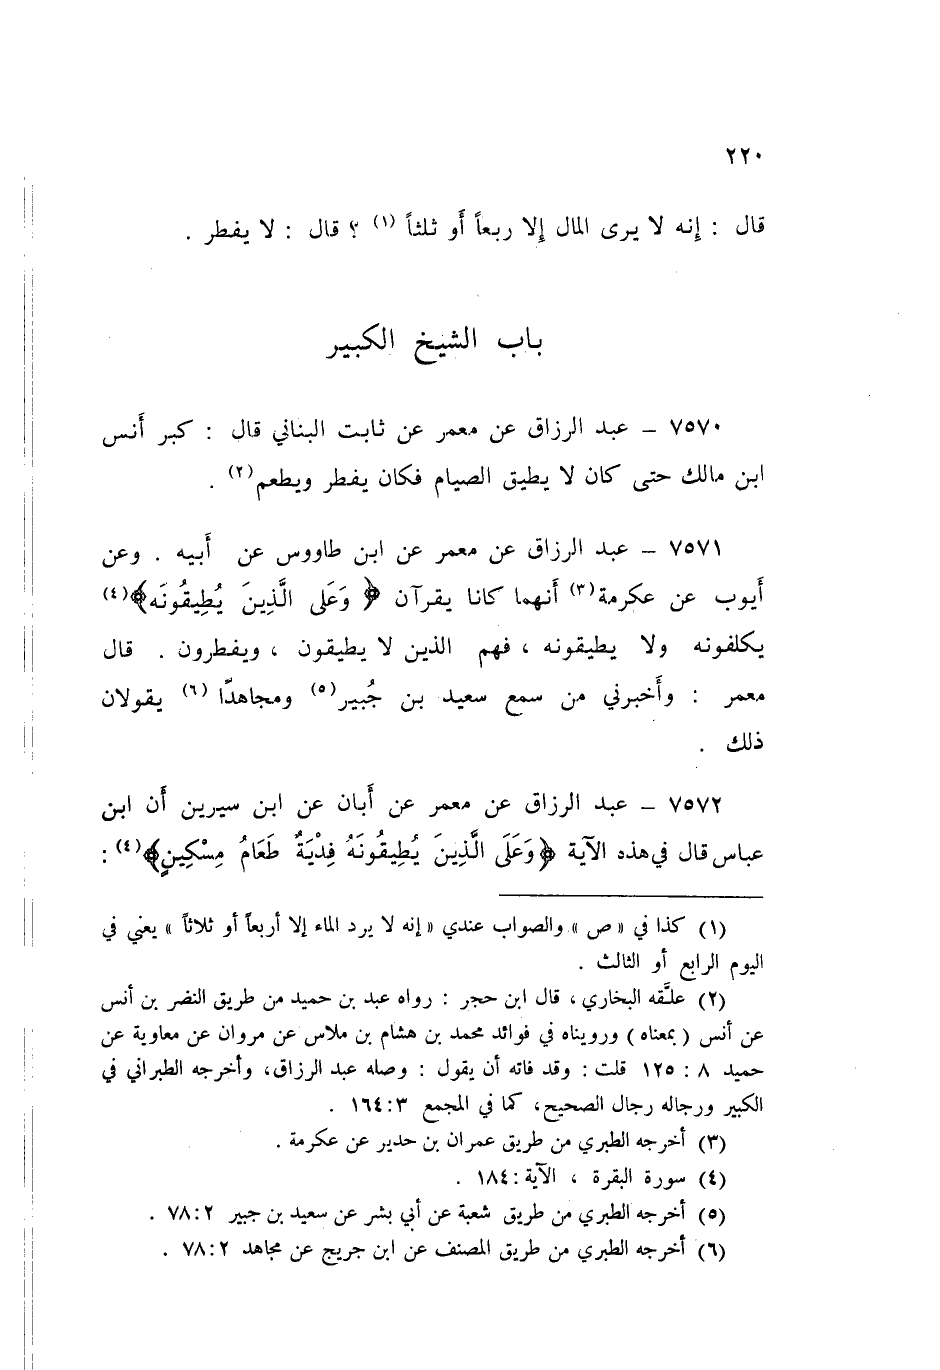 ٢٢٠
قال : إنه لا يرى المال إلا ربعاً أو ثلثاً (١) ؟ قال : لا يفطر .
باب الشيخ الكبير
٧٥٧٠ – عبد الرزاق عن معمر عن ثابت البناني قال : كبر أنس
ابن مالك حتى كان لا يطيق الصيام فكان يفطر ويطعم (٢) .
٧٥٧١ – عبد الرزاق عن معمر عن ابن طاووس عن أبيه . وعن
أيوب عن عكرمة (٣) أنهما كانا يقرآن ﴿ وَعَلى الَّذِينَ يُطِيقُونَه﴾ (٤)
يكلفونه ولا يطيقونه ، فهم الذين لا يطيقون ، ويفطرون . قال
معمر : وأخبرني من سمع سعيد بن جُبير (٥) ومجاهدًا (٦) يقولان
ذلك .
٧٥٧٢ – عبد الرزاق عن معمر عن أبان عن ابن سيرين أن ابن
عباس قال في هذه الآية ﴿وَعَلَى الَّذِينَ يُطِيقُونَهُ فِدْيَةٌ طَعَامُ مِسْكِينٍ﴾ (٤) :
(١) كذا في « ص » والصواب عندي « إنه لا يرد الماء إلا أربعاً أو ثلاثاً » يعني في
اليوم الرابع أو الثالث .
(٢) علَّقه البخاري ، قال ابن حجر : رواه عبد بن حميد من طريق النضر بن أنس
عن أنس ( بمعناه ) ورويناه في فوائد محمد بن هشام بن ملاس عن مروان عن معاوية عن
حميد ٨ : ١٢٥ قلت : وقد فاته أن يقول : وصله عبد الرزاق، وأخرجه الطبراني في
الكبير ورجاله رجال الصحيح، كما في المجمع ٣:١٦٤ .
(٣) أخرجه الطبري من طريق عمران بن حدير عن عكرمة .
(٤) سورة البقرة ، الآية : ١٨٤ .
(٥) أخرجه الطبري من طريق شعبة عن أبي بشر عن سعيد بن جبير ٢:٧٨ .
(٦) أخرجه الطبري من طريق المصنف عن ابن جريج عن مجاهد ٢:٧٨ .